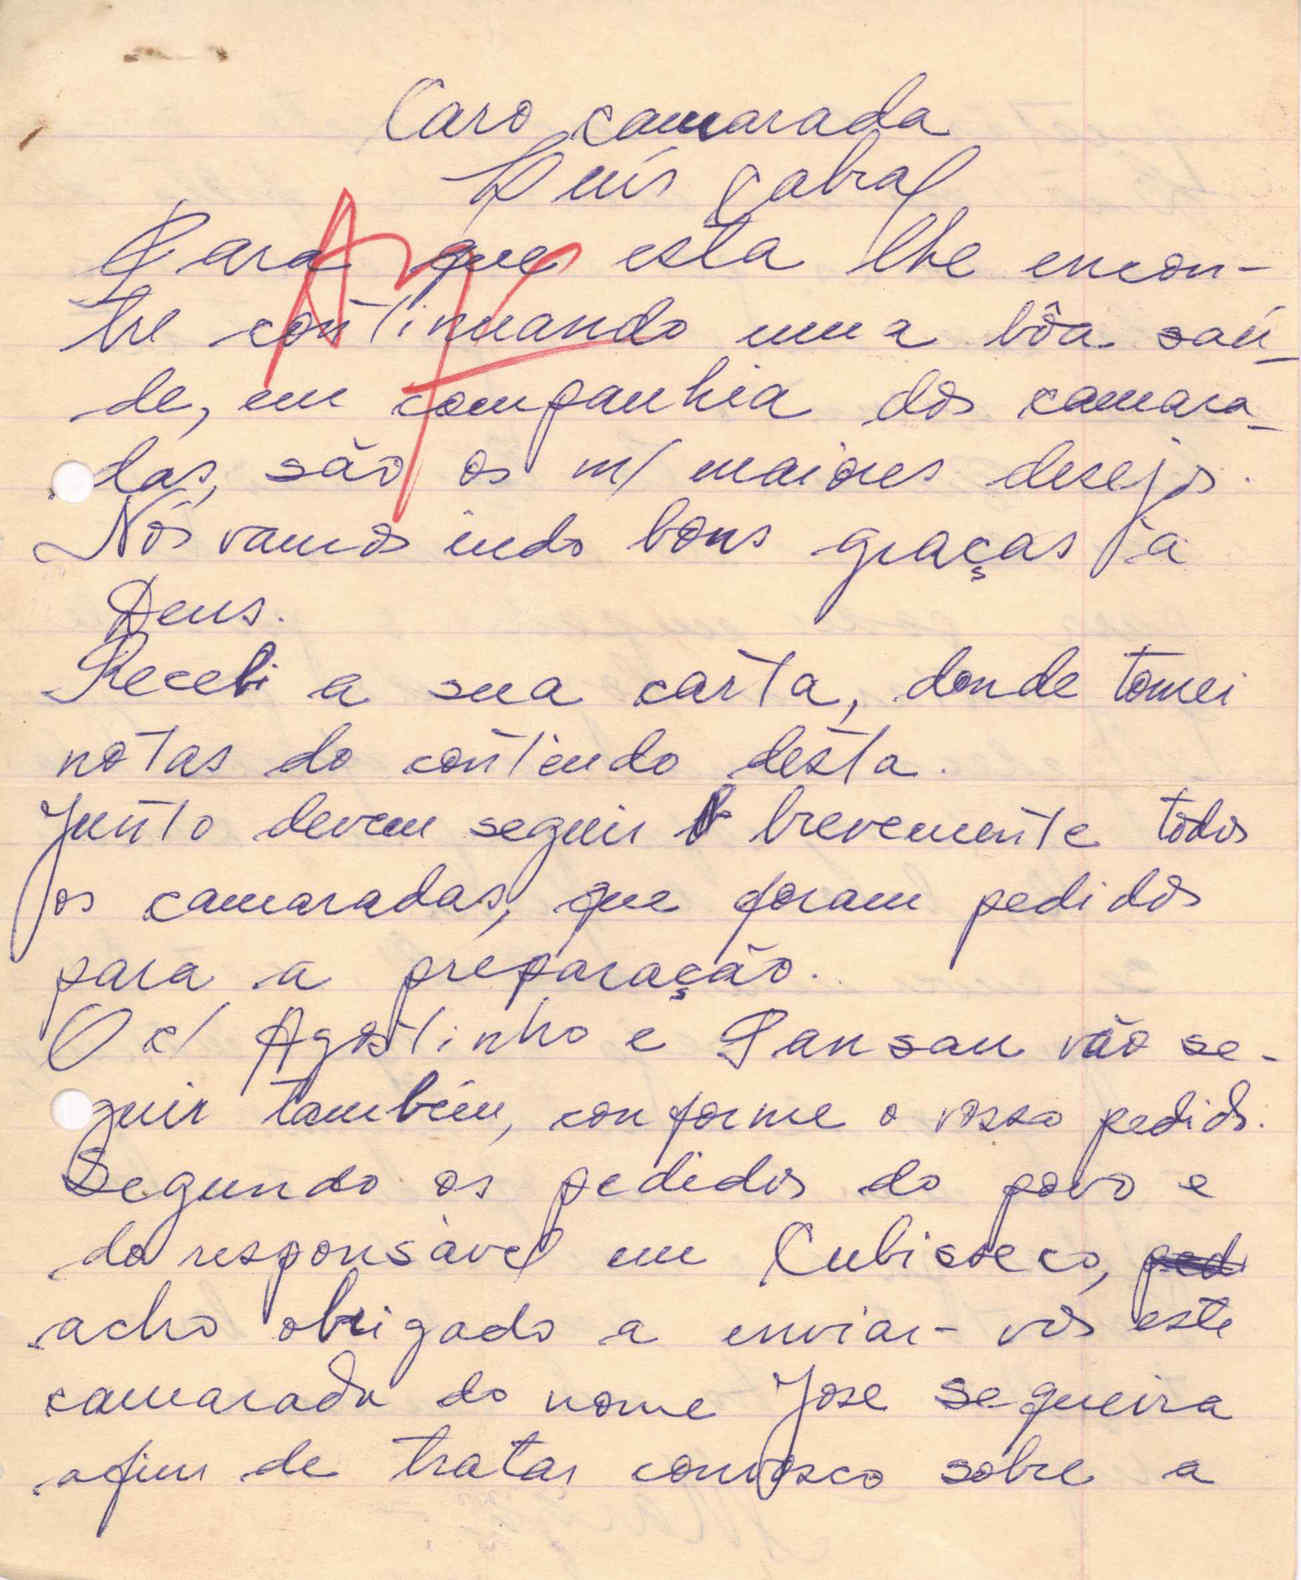 Caro camarada
Luís Cabral
Para que esta lhe encon-
tre continuando uma bôa saú-
de, em companhia dos camara-
das, são os m/ maiores desejos.
Nós vamos indo bons graças a
Deus.
Recebi a sua carta, donde tomei
notas do contiendo desta.
Junto devem seguir brevemente todos
os camaradas, que foram pedidos
para a preparação.
O c/ Agostinho e Sansau vão se-
guir também, conforme o vosso pedido.
Segundo os pedidos do povo e
do responsável em Cubisseco,
acho obrigado a enviar-vos este
camarada do nome Jose Sequeira
afim de tratar convosco sobre a